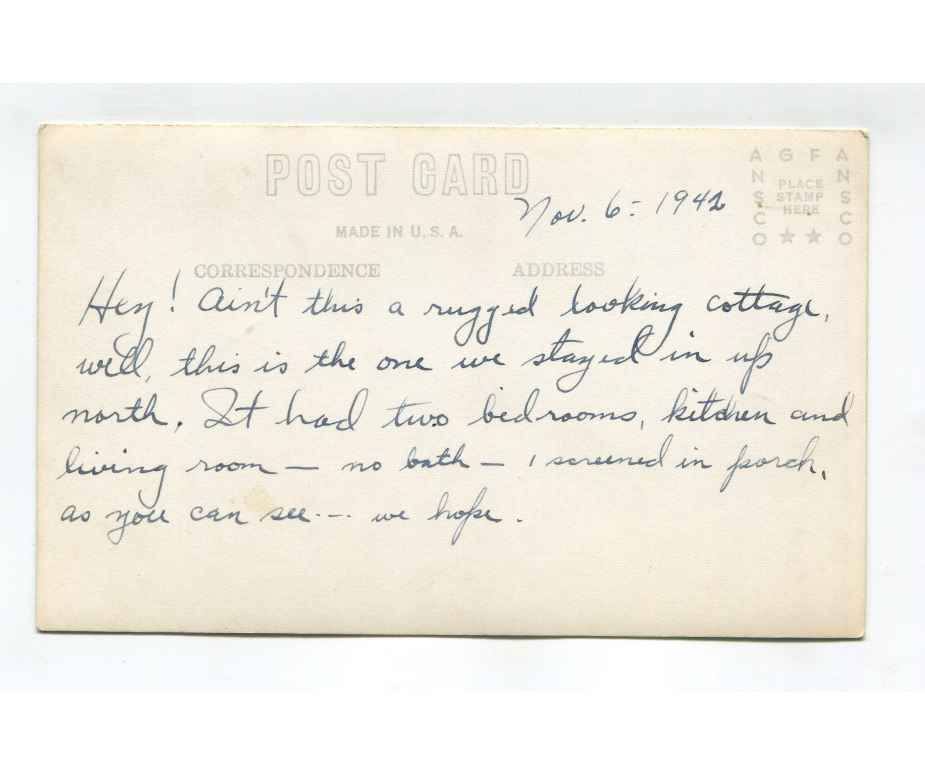 POST CARD
AGFA
ANSCO
ANSCO
PLACE
STAMP
HERE
Nov. 6 - 1942
MADE IN U.S.A.
CORRESPONDENCE ADDRESS
Hey! Ain't this a rugged looking cottage,
well, this is the one we stayed in up
north. It had two bedrooms, kitchen and
living room — no bath — 1 screened in porch,
as you can see --- we hope.